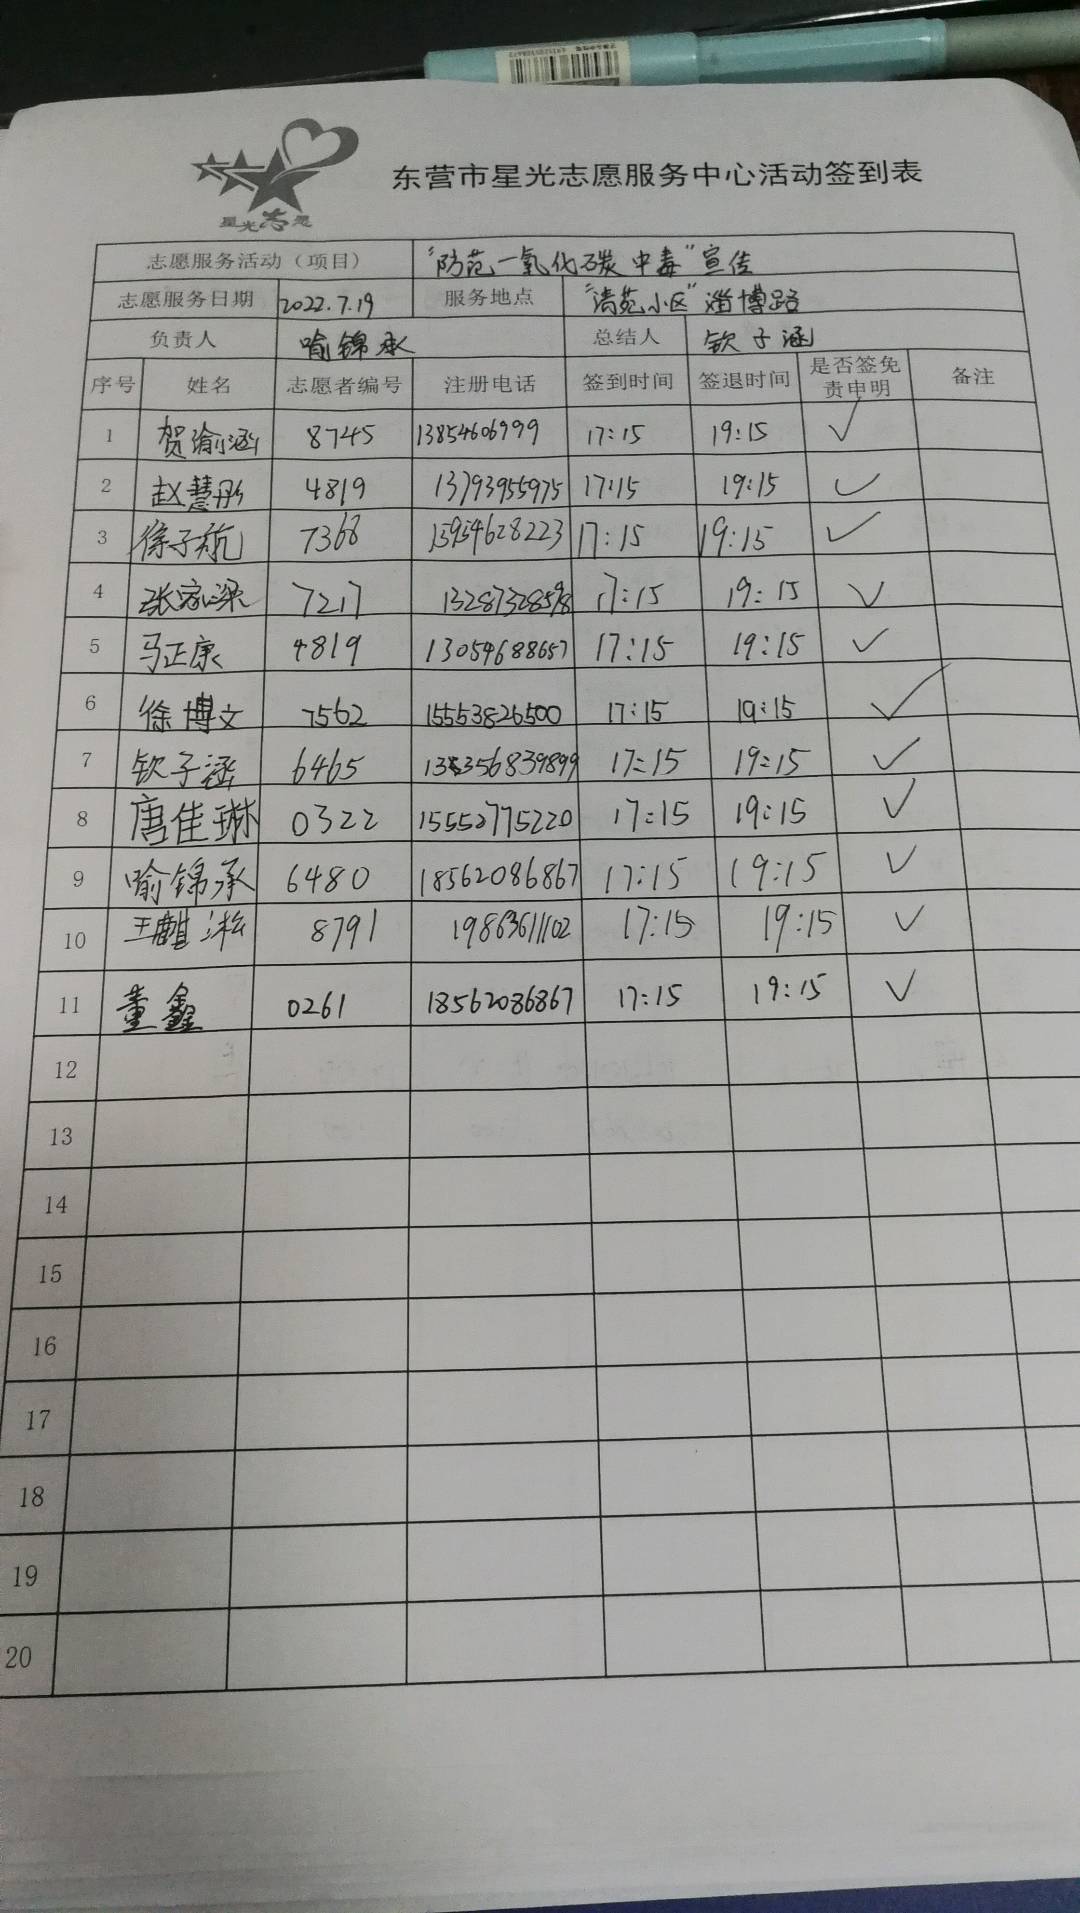 星光志愿
东营市星光志愿服务中心活动签到表
志愿服务活动（项目） “防范一氧化碳中毒”宣传
志愿服务日期 2022.7.19 服务地点 “清苑小区”淄博路
负责人 喻锦承 总结人 钦子涵
序号 姓名 志愿者编号 注册电话 签到时间 签退时间 是否签免责申明 备注
1 贺瑜涵 8745 13854606999 17:15 19:15 ✓
2 赵慧彤 4819 13793955975 17:15 19:15 ✓
3 徐子航 7368 15954628223 17:15 19:15 ✓
4 张家梁 7217 17:15 19:15 ✓
5 马正康 4819 13054688657 17:15 19:15 ✓
6 徐博文 7562 15553826500 17:15 19:15 ✓
7 钦子涵 6465 17:15 19:15 ✓
8 唐佳琳 0322 15552775220 17:15 19:15 ✓
9 喻锦承 6480 18562086867 17:15 19:15 ✓
10 王麒淞 8791 19863611102 17:15 19:15 ✓
11 董鑫 0261 18562086867 17:15 19:15 ✓
12
13
14
15
16
17
18
19
20